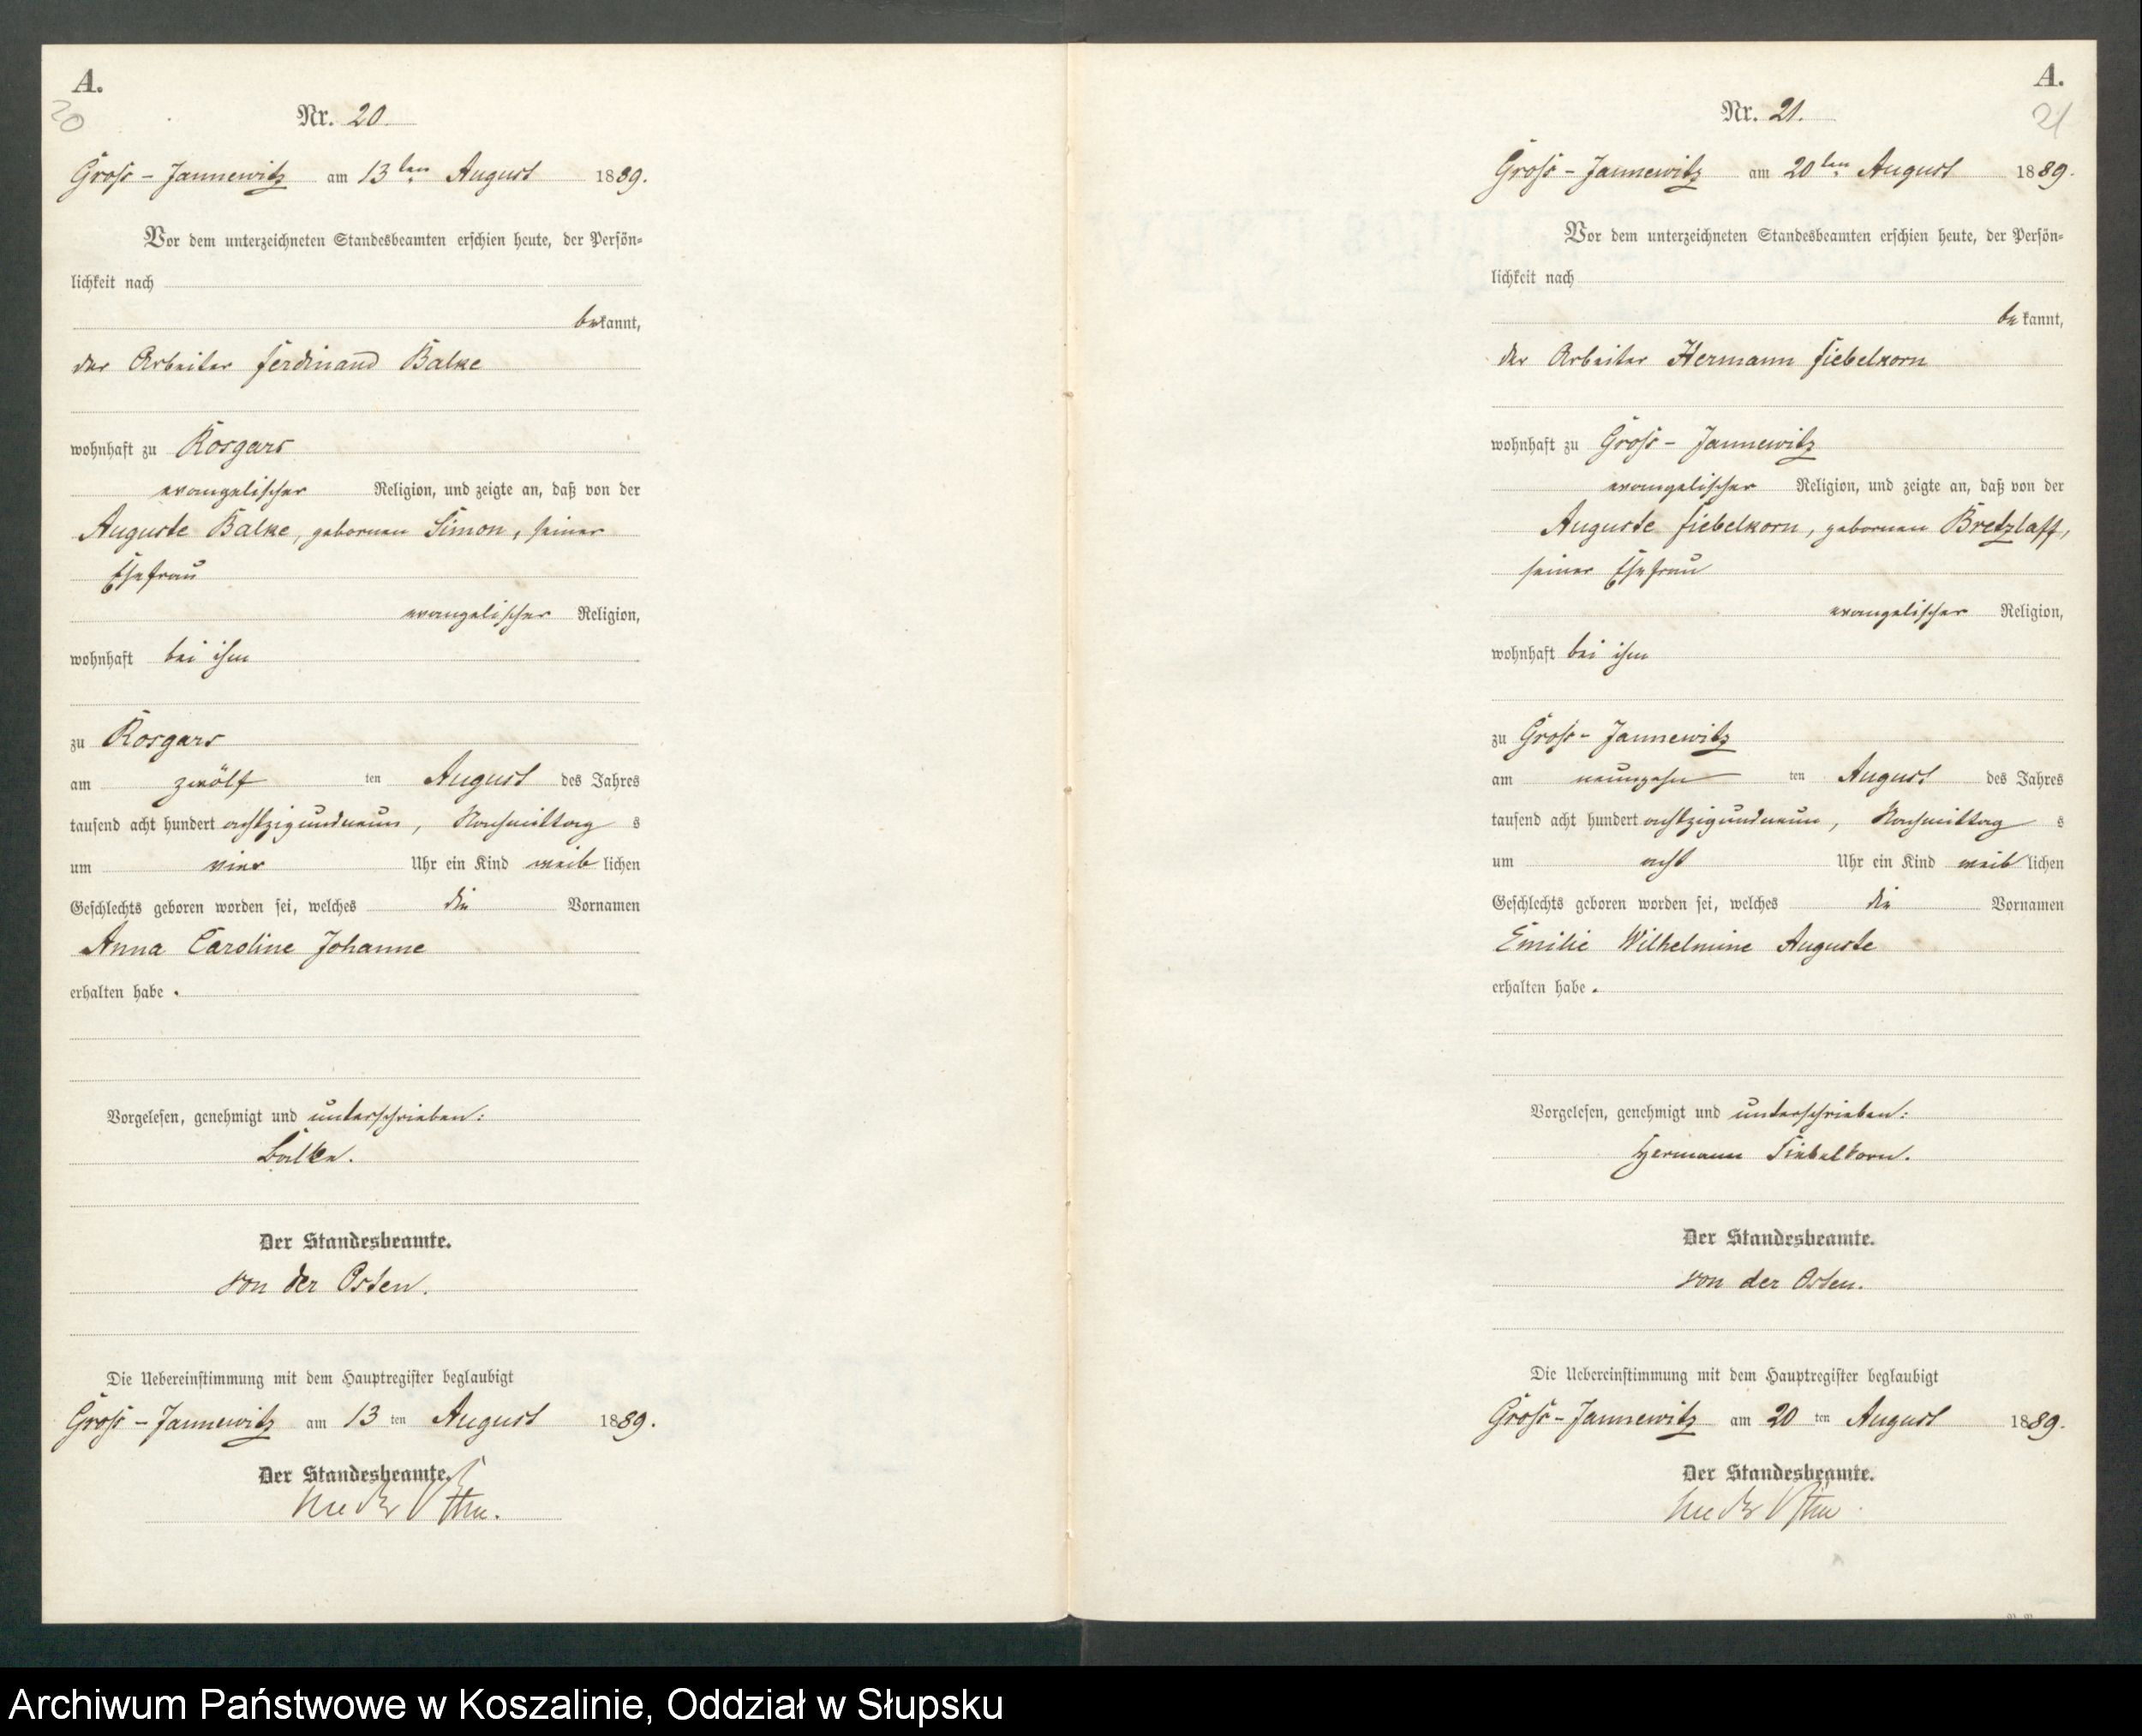 A.
20
Nr. 20.
Gross-Jannewitz am 13ten August 1889.
Vor dem unterzeichneten Standesbeamten erschien heute, der Persön=
lichkeit nach
bekannt,
der Arbeiter Ferdinand Balke
wohnhaft zu Rosgars
evangelischer Religion, und zeigte an, daß von der
Auguste Balke, gebornen Simon, seiner
Ehefrau
evangelischer Religion,
wohnhaft bei ihm
zu Rosgars
am zwölf ten August des Jahres
tausend acht hundert achtzigundneun, Nachmittag s
um vier Uhr ein Kind weib lichen
Geschlechts geboren worden sei, welches die Vornamen
Anna Caroline Johanne
erhalten habe.
Vorgelesen, genehmigt und unterschrieben:
Balke.
Der Standesbeamte.
von der Osten.
Die Uebereinstimmung mit dem Hauptregister beglaubigt
Gross-Jannewitz am 13 ten August 1889.
Der Standesbeamte.
A.
21
Nr. 21.
Gross-Jannewitz am 20ten August 1889.
Vor dem unterzeichneten Standesbeamten erschien heute, der Persön=
lichkeit nach
bekannt,
der Arbeiter Hermann Fiebelkorn
wohnhaft zu Gross-Jannewitz
evangelischer Religion, und zeigte an, daß von der
Auguste Fiebelkorn, gebornen Bretzlaff,
seiner Ehefrau
evangelischer Religion,
wohnhaft bei ihm
zu Gross-Jannewitz
am neunzehn ten August des Jahres
tausend acht hundert achtzigundneun, Nachmittag s
um acht Uhr ein Kind weib lichen
Geschlechts geboren worden sei, welches die Vornamen
Emilie Wilhelmine Auguste
erhalten habe.
Vorgelesen, genehmigt und unterschrieben:
Hermann Fiebelkorn.
Der Standesbeamte.
von der Osten.
Die Uebereinstimmung mit dem Hauptregister beglaubigt
Gross-Jannewitz am 20 ten August 1889.
Der Standesbeamte.
Archiwum Państwowe w Koszalinie, Oddział w Słupsku